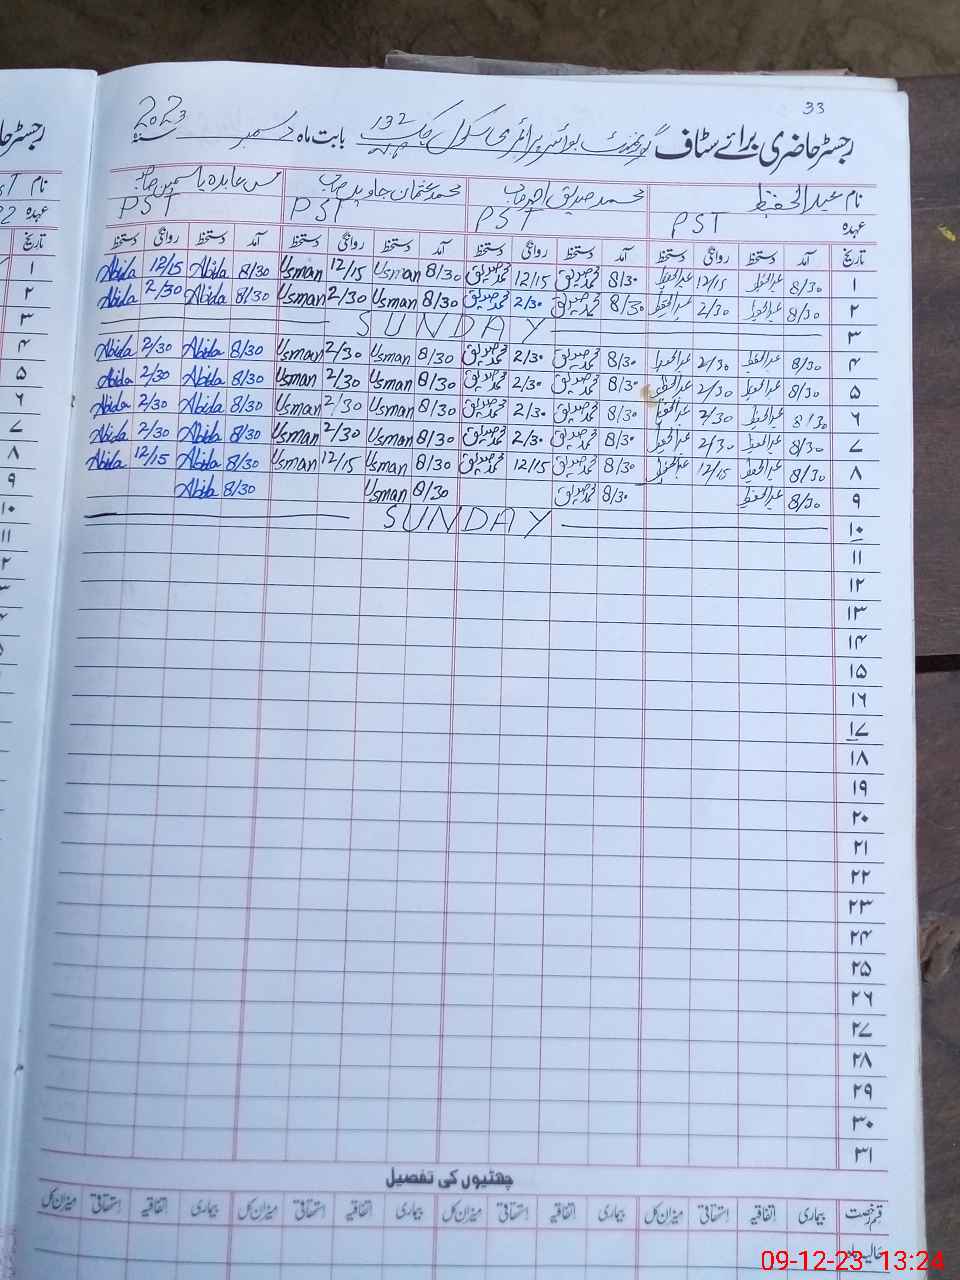 33
رجسٹر حاضری برائے سٹاف گورنمنٹ بوائز پرائمری سکول چک 132 بابت ماہ دسمبر سنہ 2023
نام عبدالحفیظ محمد صدیق احمد صاحب محمد عثمان جاوید صاحب مس عابدہ یاسمین صاحبہ
عہدہ PST PST PST PST
تاریخ آمد دستخط روانگی دستخط آمد دستخط روانگی دستخط آمد دستخط روانگی دستخط آمد دستخط روانگی دستخط
۱ 8/30 عبدالحفیظ 12/15 عبدالحفیظ 8/30 محمد صدیق 12/15 محمد صدیق 8/30 Usman 12/15 Usman 8/30 Abida 12/15 Abida
۲ 8/30 عبدالحفیظ 2/30 عبدالحفیظ 8/30 محمد صدیق 2/30 محمد صدیق 8/30 Usman 2/30 Usman 8/30 Abida 2/30 Abida
۳ SUNDAY
۴ 8/30 عبدالحفیظ 2/30 عبدالحفیظ 8/30 محمد صدیق 2/30 محمد صدیق 8/30 Usman 2/30 Usman 8/30 Abida 2/30 Abida
۵ 8/30 عبدالحفیظ 2/30 عبدالحفیظ 8/30 محمد صدیق 2/30 محمد صدیق 8/30 Usman 2/30 Usman 8/30 Abida 2/30 Abida
۶ 8/30 عبدالحفیظ 2/30 عبدالحفیظ 8/30 محمد صدیق 2/30 محمد صدیق 8/30 Usman 2/30 Usman 8/30 Abida 2/30 Abida
۷ 8/30 عبدالحفیظ 2/30 عبدالحفیظ 8/30 محمد صدیق 2/30 محمد صدیق 8/30 Usman 2/30 Usman 8/30 Abida 2/30 Abida
۸ 8/30 عبدالحفیظ 12/15 عبدالحفیظ 8/30 محمد صدیق 12/15 محمد صدیق 8/30 Usman 12/15 Usman 8/30 Abida 12/15 Abida
۹ 8/30 عبدالحفیظ 8/30 محمد صدیق 8/30 Usman 8/30 Abida
۱۰ SUNDAY
۱۱
۱۲
۱۳
۱۴
۱۵
۱۶
۱۷
۱۸
۱۹
۲۰
۲۱
۲۲
۲۳
۲۴
۲۵
۲۶
۲۷
۲۸
۲۹
۳۰
۳۱
چھٹیوں کی تفصیل
قسم رخصت بیماری اتفاقیہ استحقاقی میزان کل بیماری اتفاقیہ استحقاقی میزان کل بیماری اتفاقیہ استحقاقی میزان کل بیماری اتفاقیہ استحقاقی میزان کل
حالیہ ماہ
09-12-23 13:24